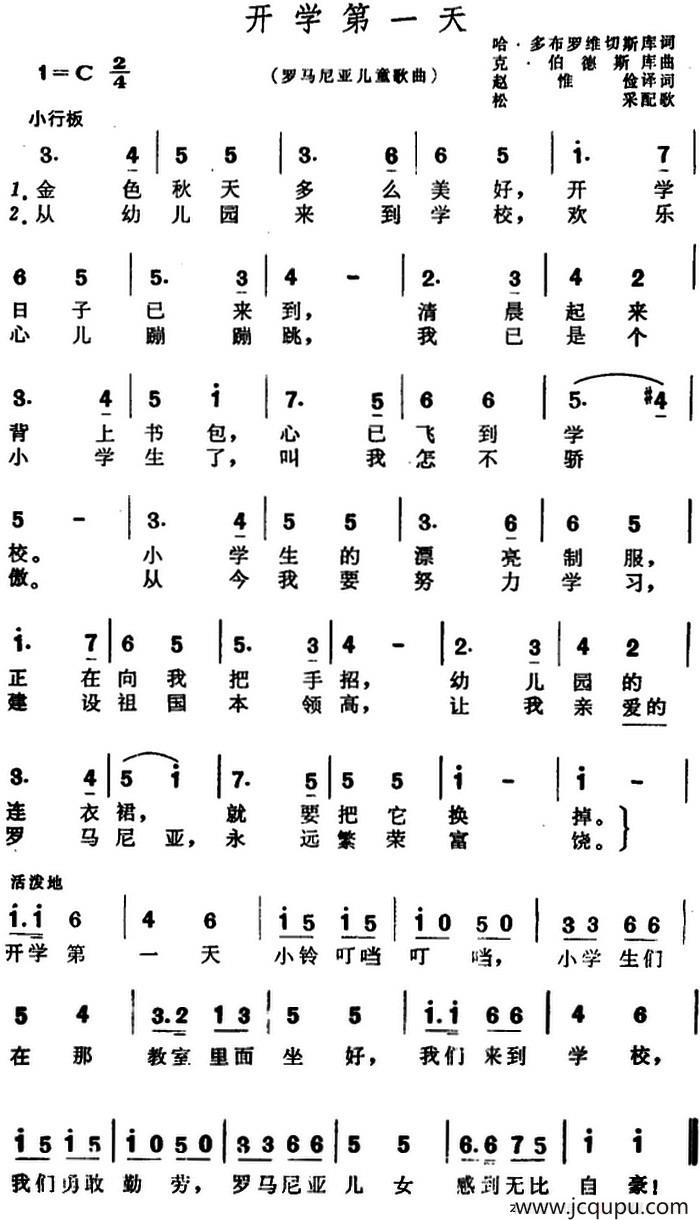 开学第一天
哈·多布罗维切斯库词
1=C 2/4 （罗马尼亚儿童歌曲） 克·伯德斯库曲
赵惟俭译词
松采配歌
小行板
3. 4 | 5 5 | 3. 6 | 6 5 | i. 7 |
1.金色秋天多么美好，开学
2.从幼儿园来到学校，欢乐
6 5 | 5. 3 | 4 - | 2. 3 | 4 2 |
日子已来到，清晨起来
心儿蹦蹦跳，我已是个
3. 4 | 5 i | 7. 5 | 6 6 | 5. #4 |
背上书包，心已飞到学
小学生了，叫我怎不骄
5 - | 3. 4 | 5 5 | 3. 6 | 6 5 |
校。小学生的漂亮制服，
傲。从今我要努力学习，
i. 7 | 6 5 | 5. 3 | 4 - | 2. 3 | 4 2 |
正在向我把手招，幼儿园的
建设祖国本领高，让我亲爱的
3. 4 | 5 i | 7. 5 | 5 5 | i - | i - |
连衣裙，就要把它换掉。
罗马尼亚，永远繁荣富饶。
活泼地
i.i 6 | 4 6 | i5 i5 | i0 50 | 33 66 |
开学第一天小铃叮当叮当，小学生们
5 4 | 3.2 13 | 5 5 | i.i 66 | 4 6 |
在那教室里面坐好，我们来到学校，
i5 i5 | i0 50 | 33 66 | 5 5 | 6.6 75 | i i ‖
我们勇敢勤劳，罗马尼亚儿女感到无比自豪！
www.jcqupu.com